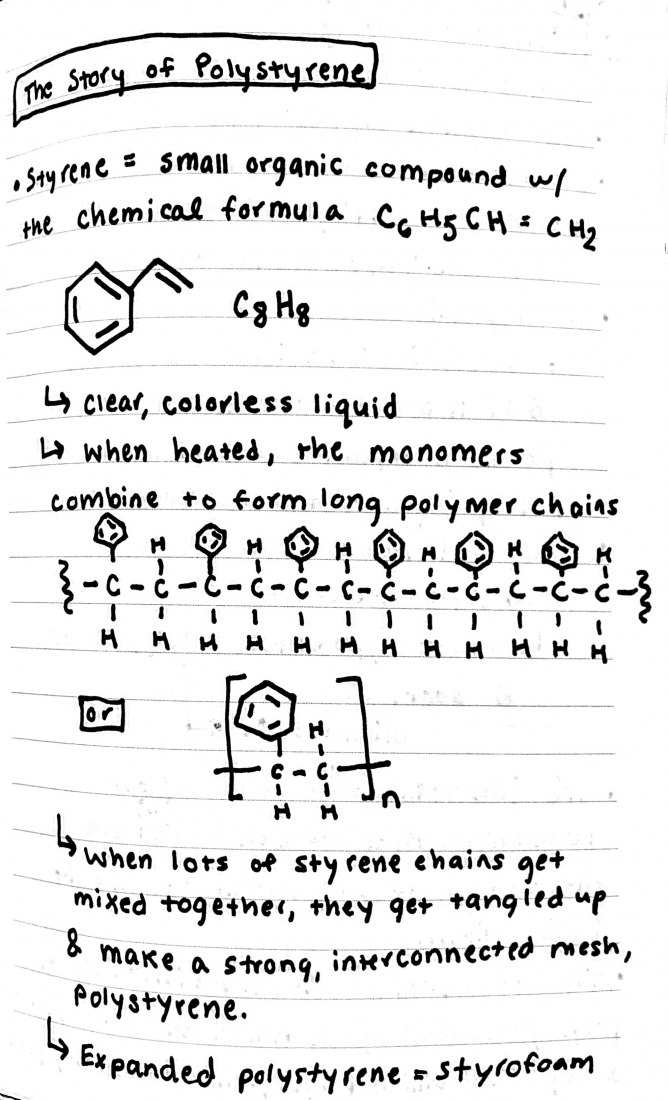 The Story of Polystyrene
• Styrene = small organic compound w/
the chemical formula C6H5CH=CH2
C8H8
↳ clear, colorless liquid
↳ when heated, the monomers
combine to form long polymer chains
H H H H H H
-C-C-C-C-C-C-C-C-C-C-C-C-
H H H H H H H H H H H H
or
H
C-C
H H n
↳ when lots of styrene chains get
mixed together, they get tangled up
& make a strong, interconnected mesh,
polystyrene.
↳ Expanded polystyrene = styrofoam